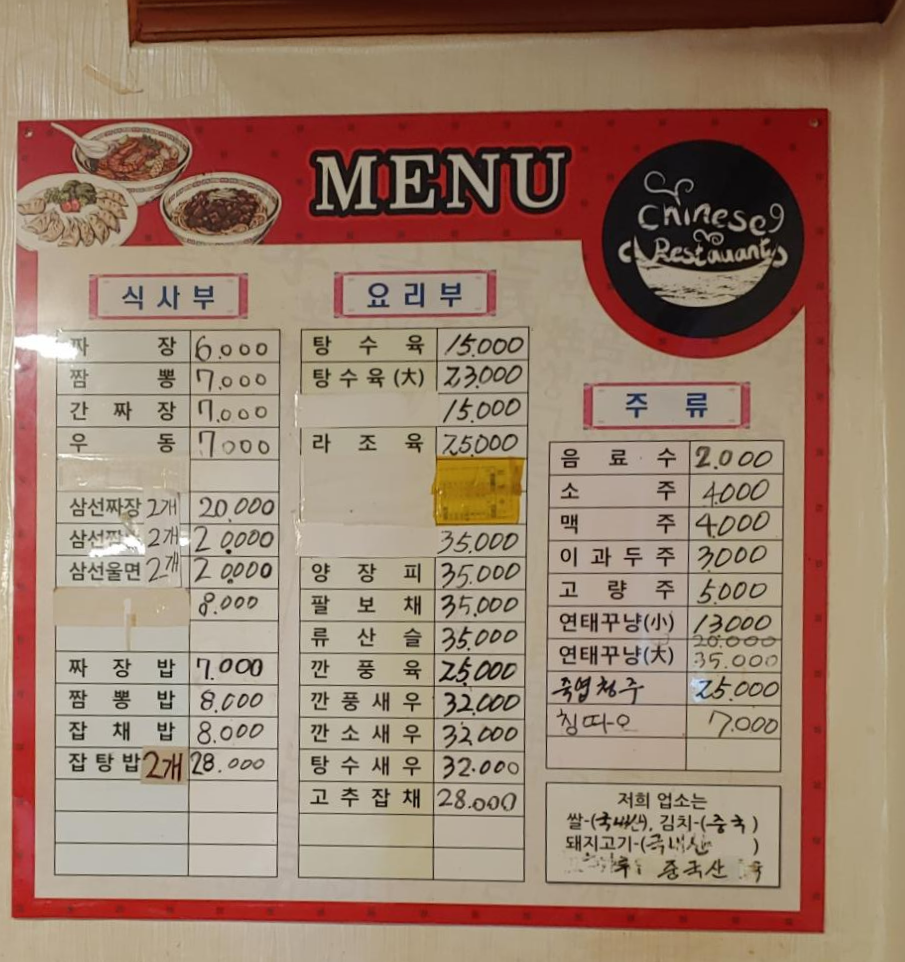 MENU
Chinese
Restaurant
식사부
짜 장 6.000
짬 뽕 7.000
간 짜 장 7.000
우 동 7000
삼선짜장 2개 20.000
삼선짬 2개 20.000
삼선울면 2개 20000
8.000
짜 장 밥 7.000
짬 뽕 밥 8.000
잡 채 밥 8.000
잡탕밥 2개 28.000
요리부
탕 수 육 15.000
탕수육(大) 23.000
15.000
라 조 육 25.000
35.000
양 장 피 35.000
팔 보 채 35.000
류 산 슬 35.000
깐 풍 육 25,000
깐풍새우 32.000
깐소새우 32000
탕수새우 32.000
고추잡채 28.000
주 류
음 료 수 2.000
소 주 4,000
맥 주 4,000
이과두주 3,000
고 량 주 5.000
연태꾸냥(小) 13000
20.000
연태꾸냥(大) 35.000
죽엽청주 25.000
칭따오 7.000
저희 업소는
쌀-(국내산), 김치-(중국)
돼지고기-(국내산 )
중국산